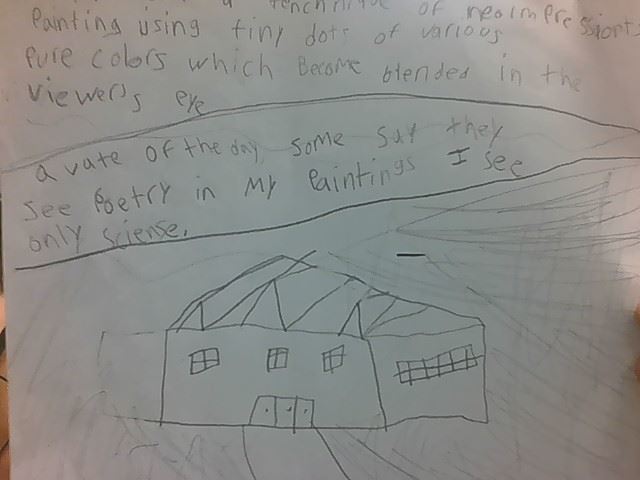 a techniique of neoimpressionts
Painting using tiny dots of various
Pure colors which Become blended in the
viewer's eye
a vate of the day, some say they
see Poetry in my Paintings I see
only sciense.